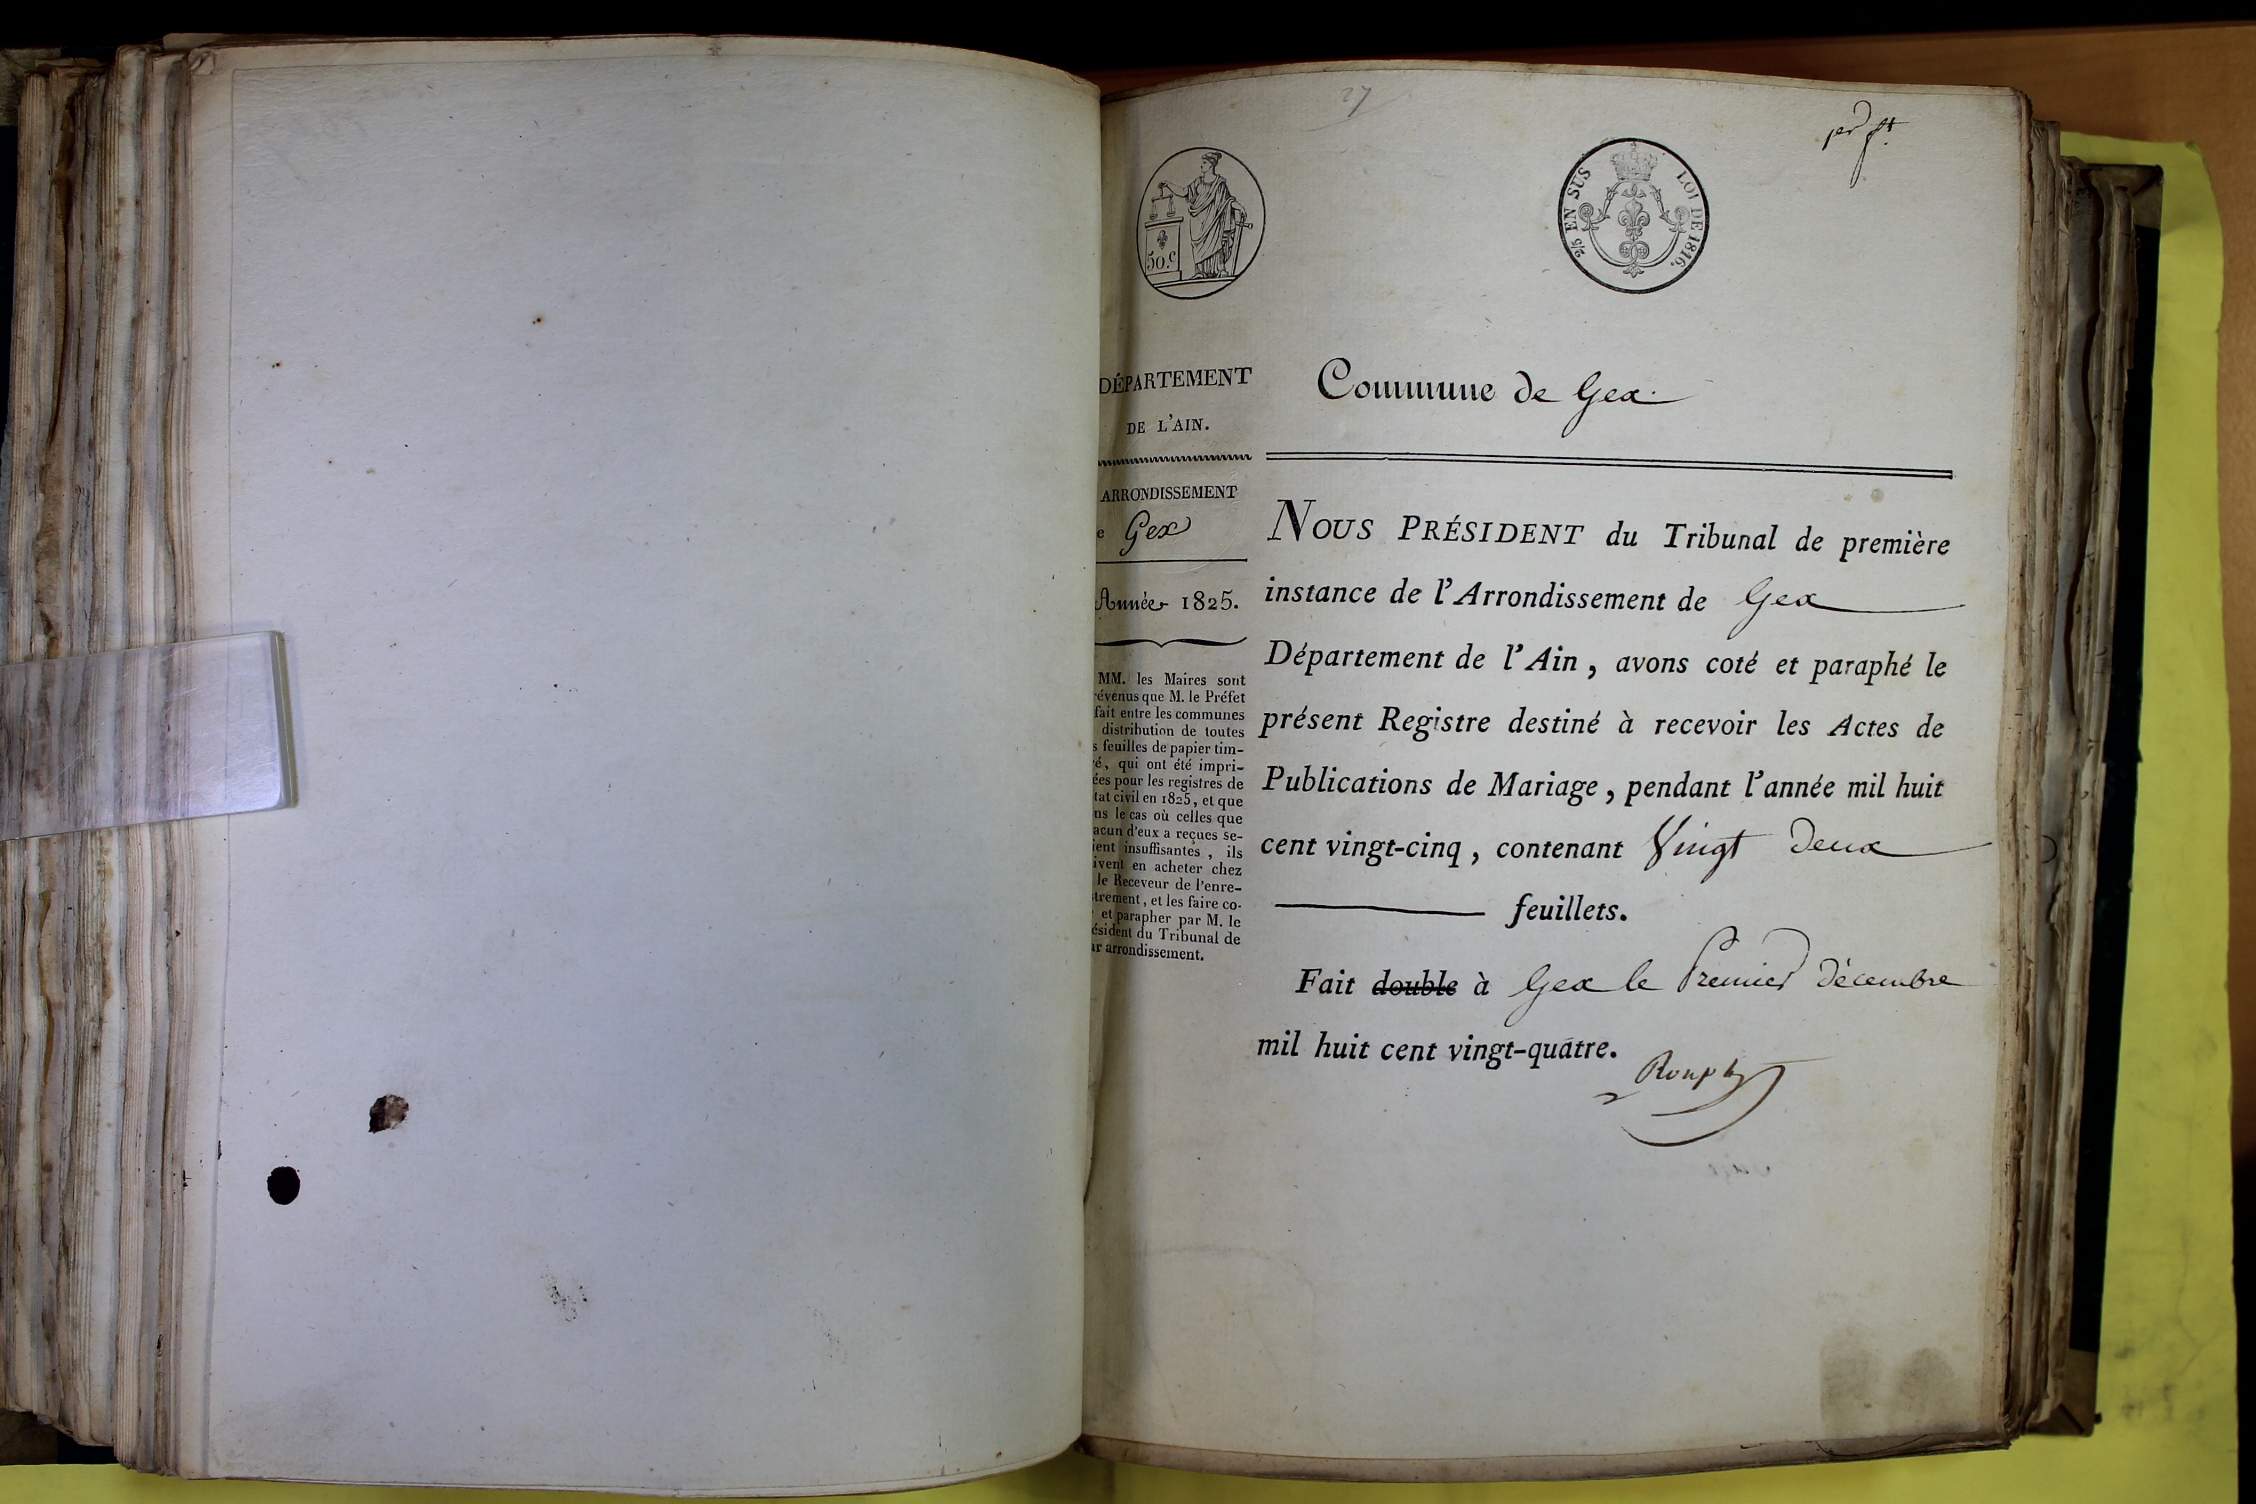 27
1er ft.
50.c
2/5 EN SUS LOI DE 1816.
DÉPARTEMENT
DE L'AIN.
ARRONDISSEMENT
e Gex
Année 1825.
MM. les Maires sont
révenus que M. le Préfet
fait entre les communes
distribution de toutes
s feuilles de papier tim-
ré, qui ont été impri-
ées pour les registres de
tat civil en 1825, et que
ns le cas où celles que
acun d'eux a reçues se-
ient insuffisantes, ils
ivent en acheter chez
le Receveur de l'enre-
trement, et les faire co-
et parapher par M. le
ésident du Tribunal de
ur arrondissement.
Commune de Gex.
NOUS PRÉSIDENT du Tribunal de première
instance de l'Arrondissement de Gex
Département de l'Ain, avons coté et paraphé le
présent Registre destiné à recevoir les Actes de
Publications de Mariage, pendant l'année mil huit
cent vingt-cinq, contenant Vingt Deux
feuillets.
Fait double à Gex le Premier Décembre
mil huit cent vingt-quatre.